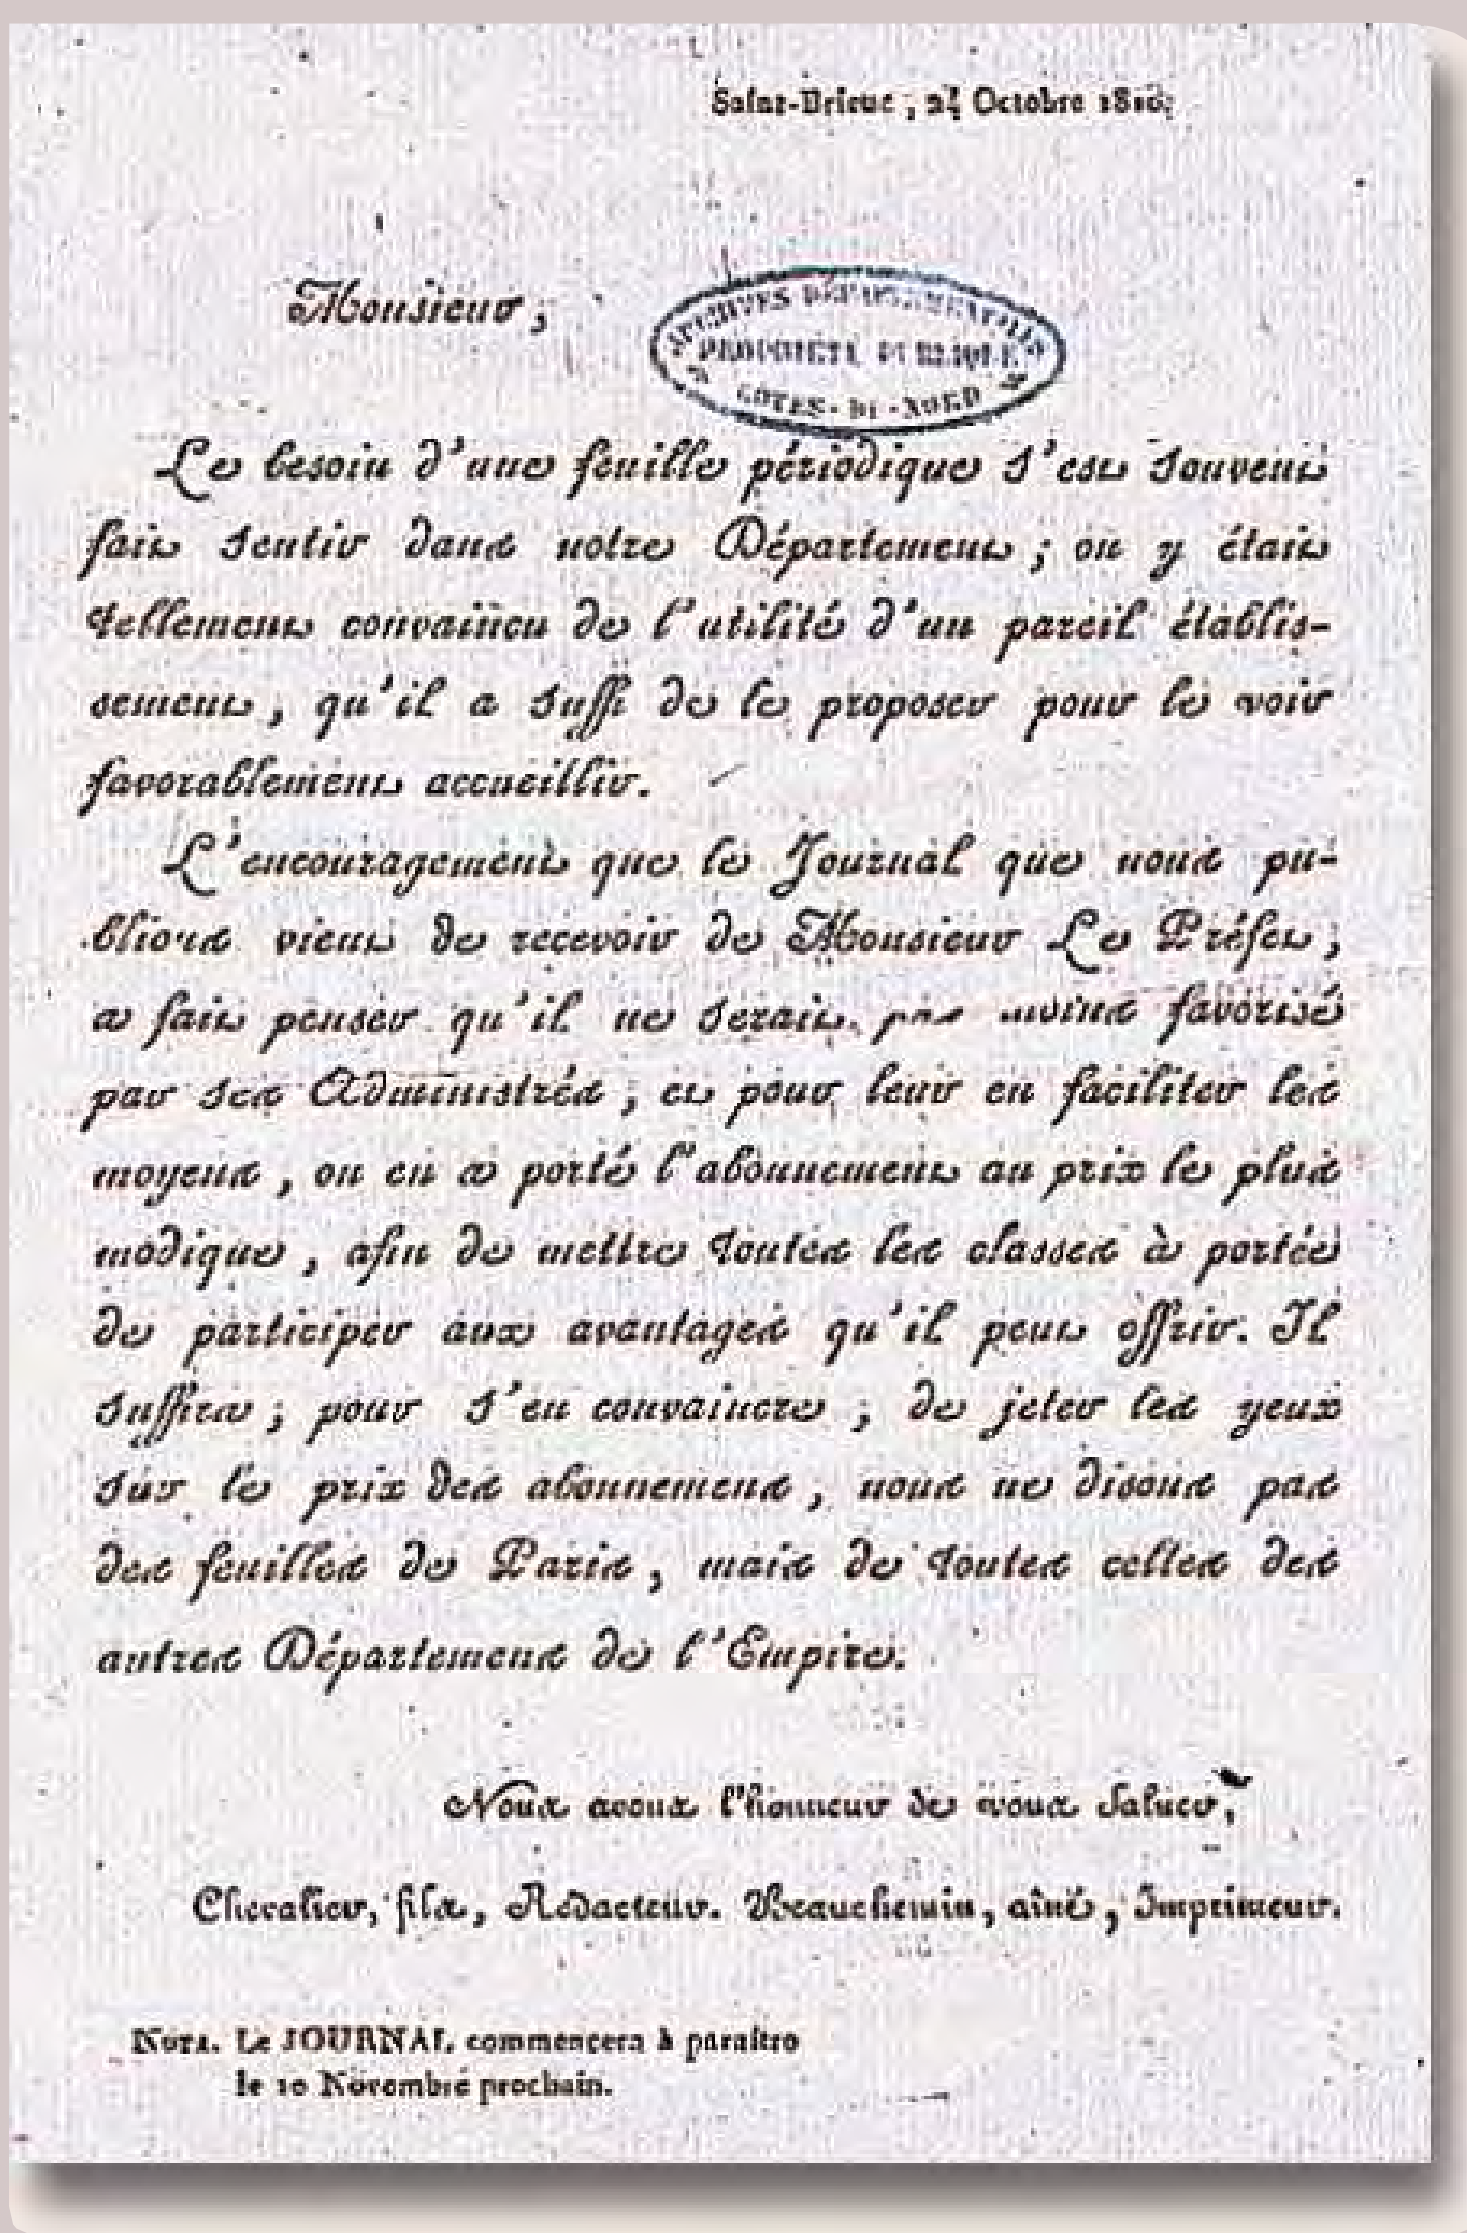 Saint-Brieuc, 24 Octobre 1810.
Monsieur,
ARCHIVES DÉPARTEMENTALES
PROPRIÉTÉ PUBLIQUE
CÔTES-DU-NORD
Le besoin d'une feuille périodique s'est souvent
fait sentir dans notre Département ; on y était
tellement convaincu de l'utilité d'un pareil établis-
sement, qu'il a suffi de le proposer pour le voir
favorablement accueillir.
L'encouragement que le Journal que nous pu-
blions vient de recevoir de Monsieur Le Préfet,
a fait penser qu'il ne serait pas moins favorisé
par ses Administrés ; et pour leur en faciliter les
moyens, on en a porté l'abonnement au prix le plus
modique, afin de mettre toutes les classes à portée
de participer aux avantages qu'il peut offrir. Il
suffira ; pour s'en convaincre ; de jeter les yeux
sur le prix des abonnemens, nous ne disons pas
des feuilles de Paris, mais de toutes celles des
autres Départemens de l'Empire.
Nous avons l'honneur de vous saluer,
Chevalier, fils, Rédacteur. Beauchemin, aîné, Imprimeur.
NOTA. Le JOURNAL commencera à paraître
le 10 Novembre prochain.